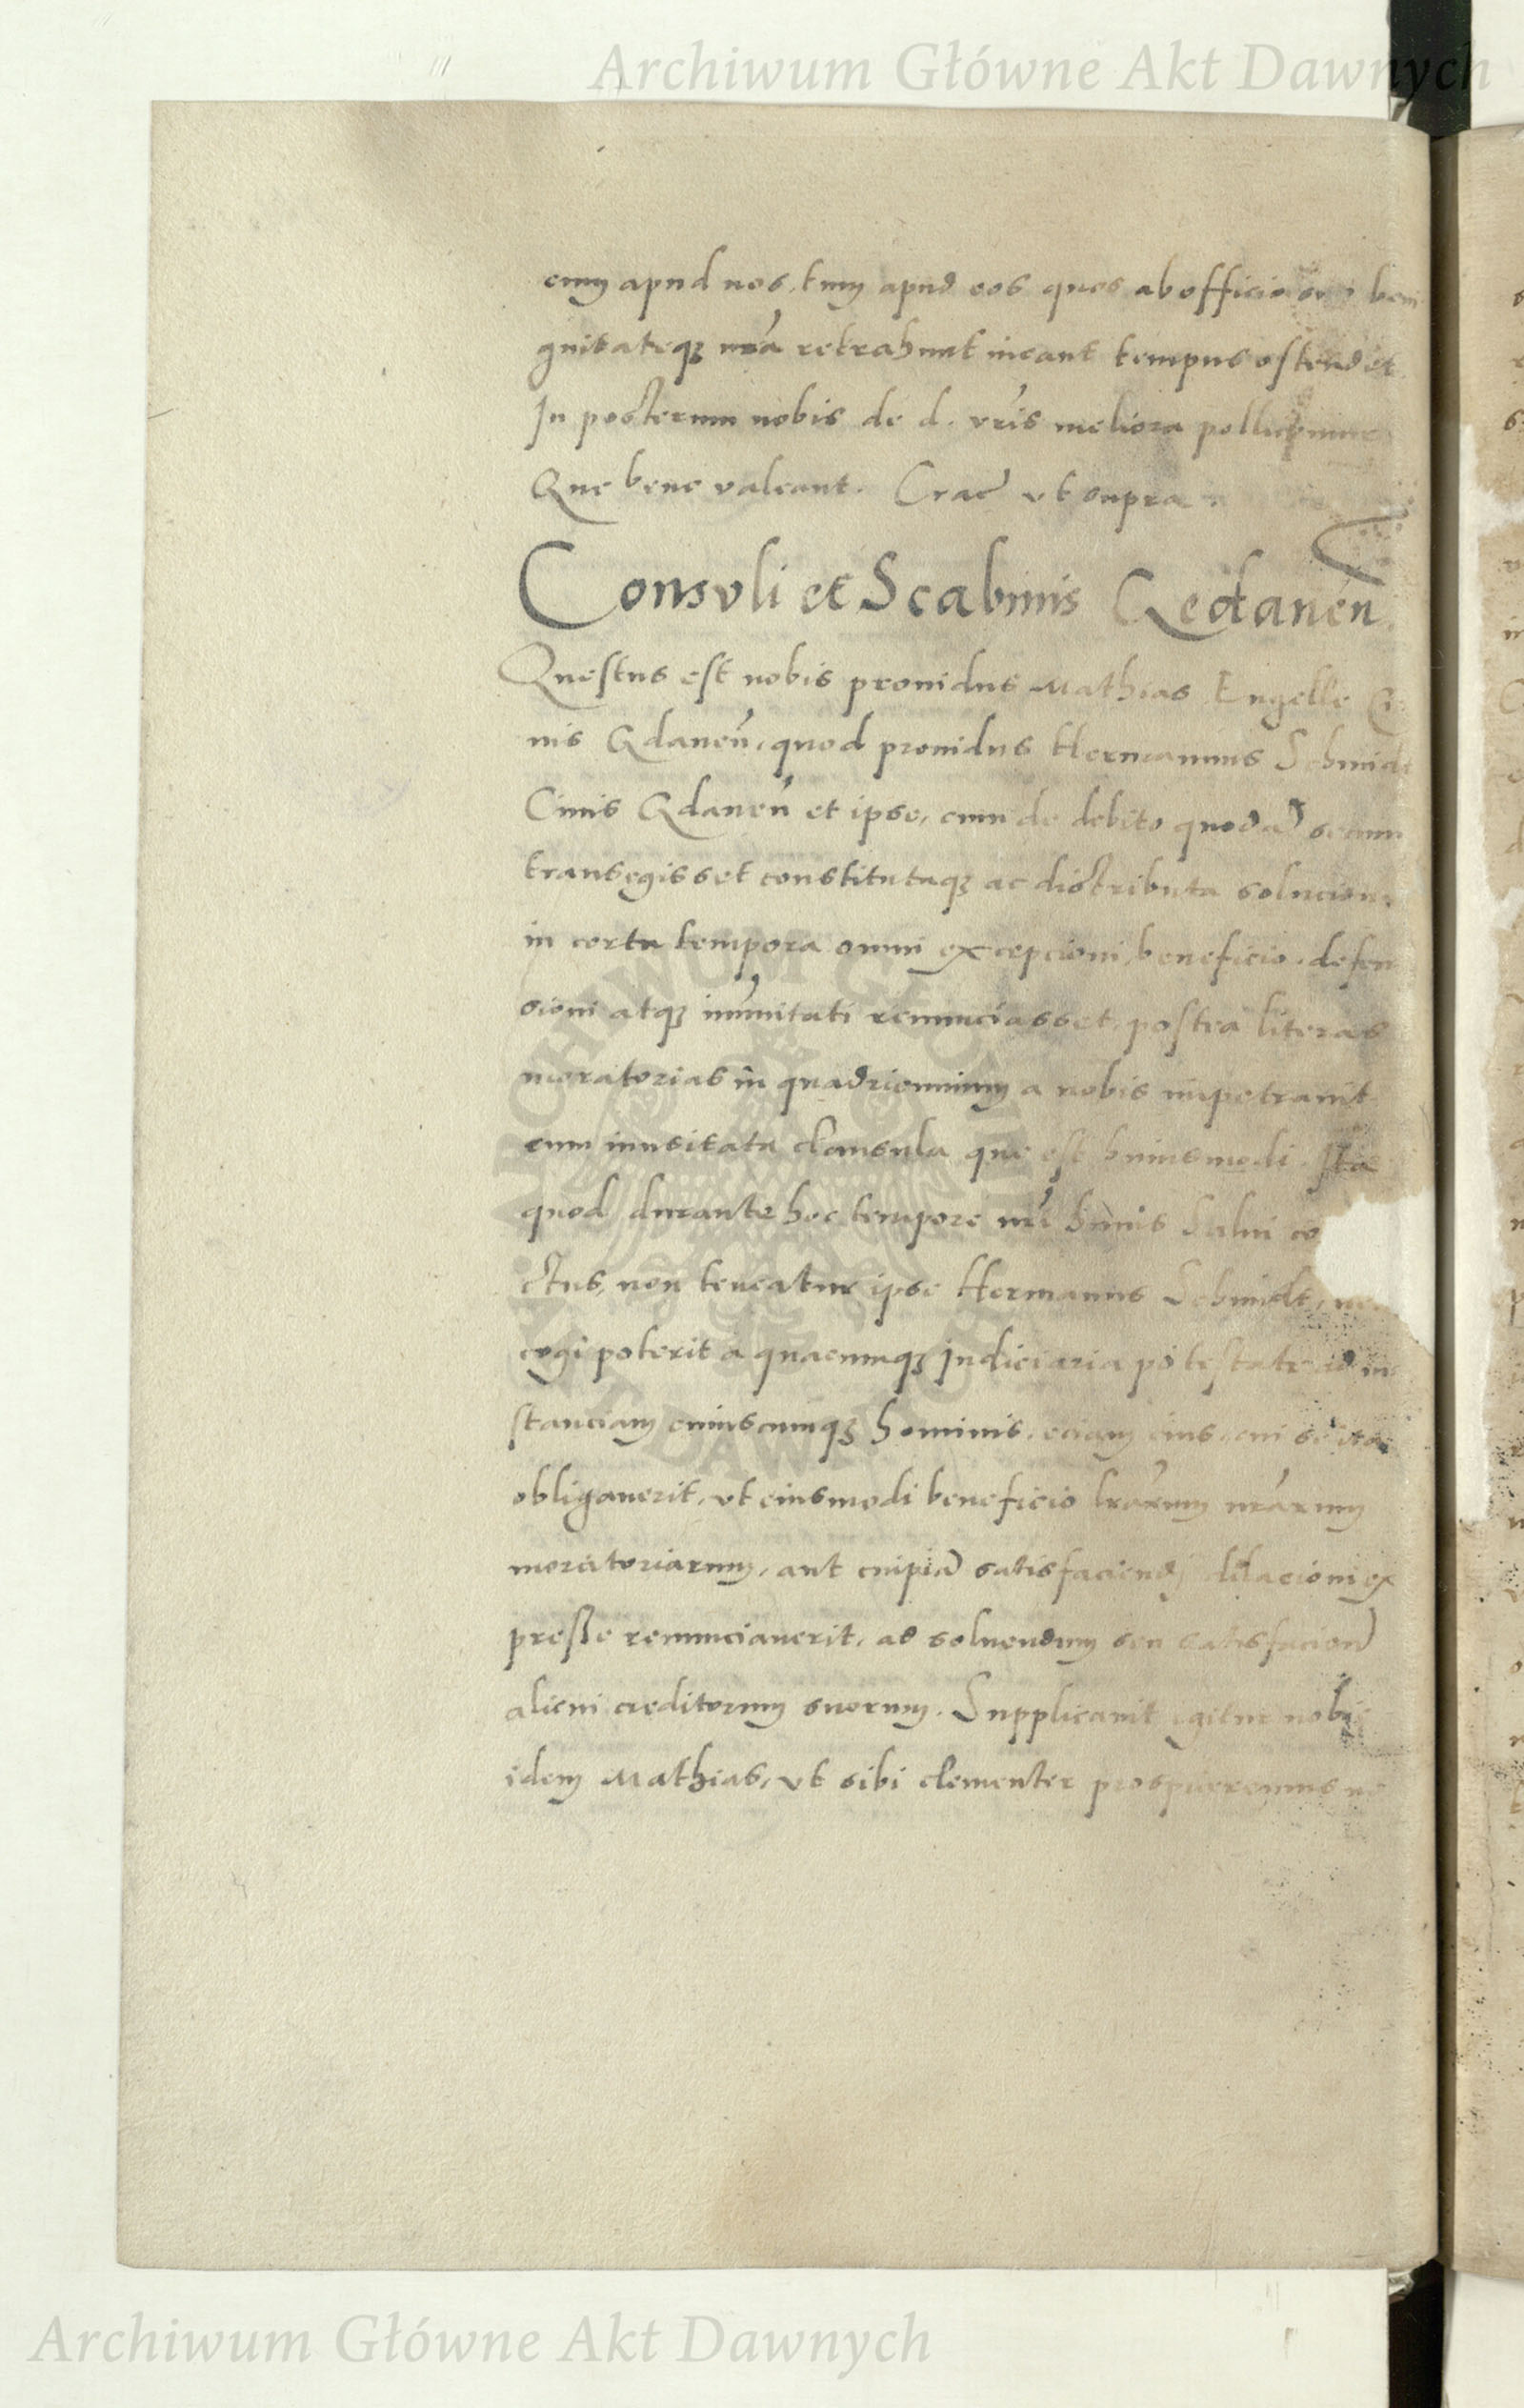 Archiwum Główne Akt Dawnych
cum apud nos, tum apud eos quos ab officio suo beni
gnitateqȝ nr̃a retrahunt ineant tempus ostendet
In posterum nobis de d. vr̃is meliora pollicemur
Que bene valeant. Crac̃ vt supra
Consuli et Scabinis Gedaneñ.
Questus est nobis prouidus Mathias Engelle Ci
uis Gdaneñ, quod prouidus Hermannus Schmidt
Ciuis Gdaneñ et ipse, cum de debito quodã secum
transegisset constitutaqȝ ac distributa solucione
in certa tempora omni excepcioni, beneficio, defen
sioni atqȝ im̃unitati renunciasset, postea literas
moratorias in quadriennium a nobis impetrauit
cum inusitata clausula que est huiusmodi. Ita
quod durante hoc tempore nr̃i huius Salui co
ctus, non teneatur ipse Hermanus Schmidt,
cogi poterit a quacunqȝ judiciaria potestate ad in
stanciam cuiuscunqȝ hominis, eciam eius, cui se ita
obligauerit, vt eiusmodi beneficio lr̃arum nr̃arum
moratoriarum, aut cuipiã satisfaciendi dilacioni ex
presse renunciauerit, ad soluendum seu satisfaciend
alicui creditorum suorum. Supplicauit igitur nobis
idem Mathias, vt sibi clementer prospiceremus ne
Archiwum Główne Akt Dawnych